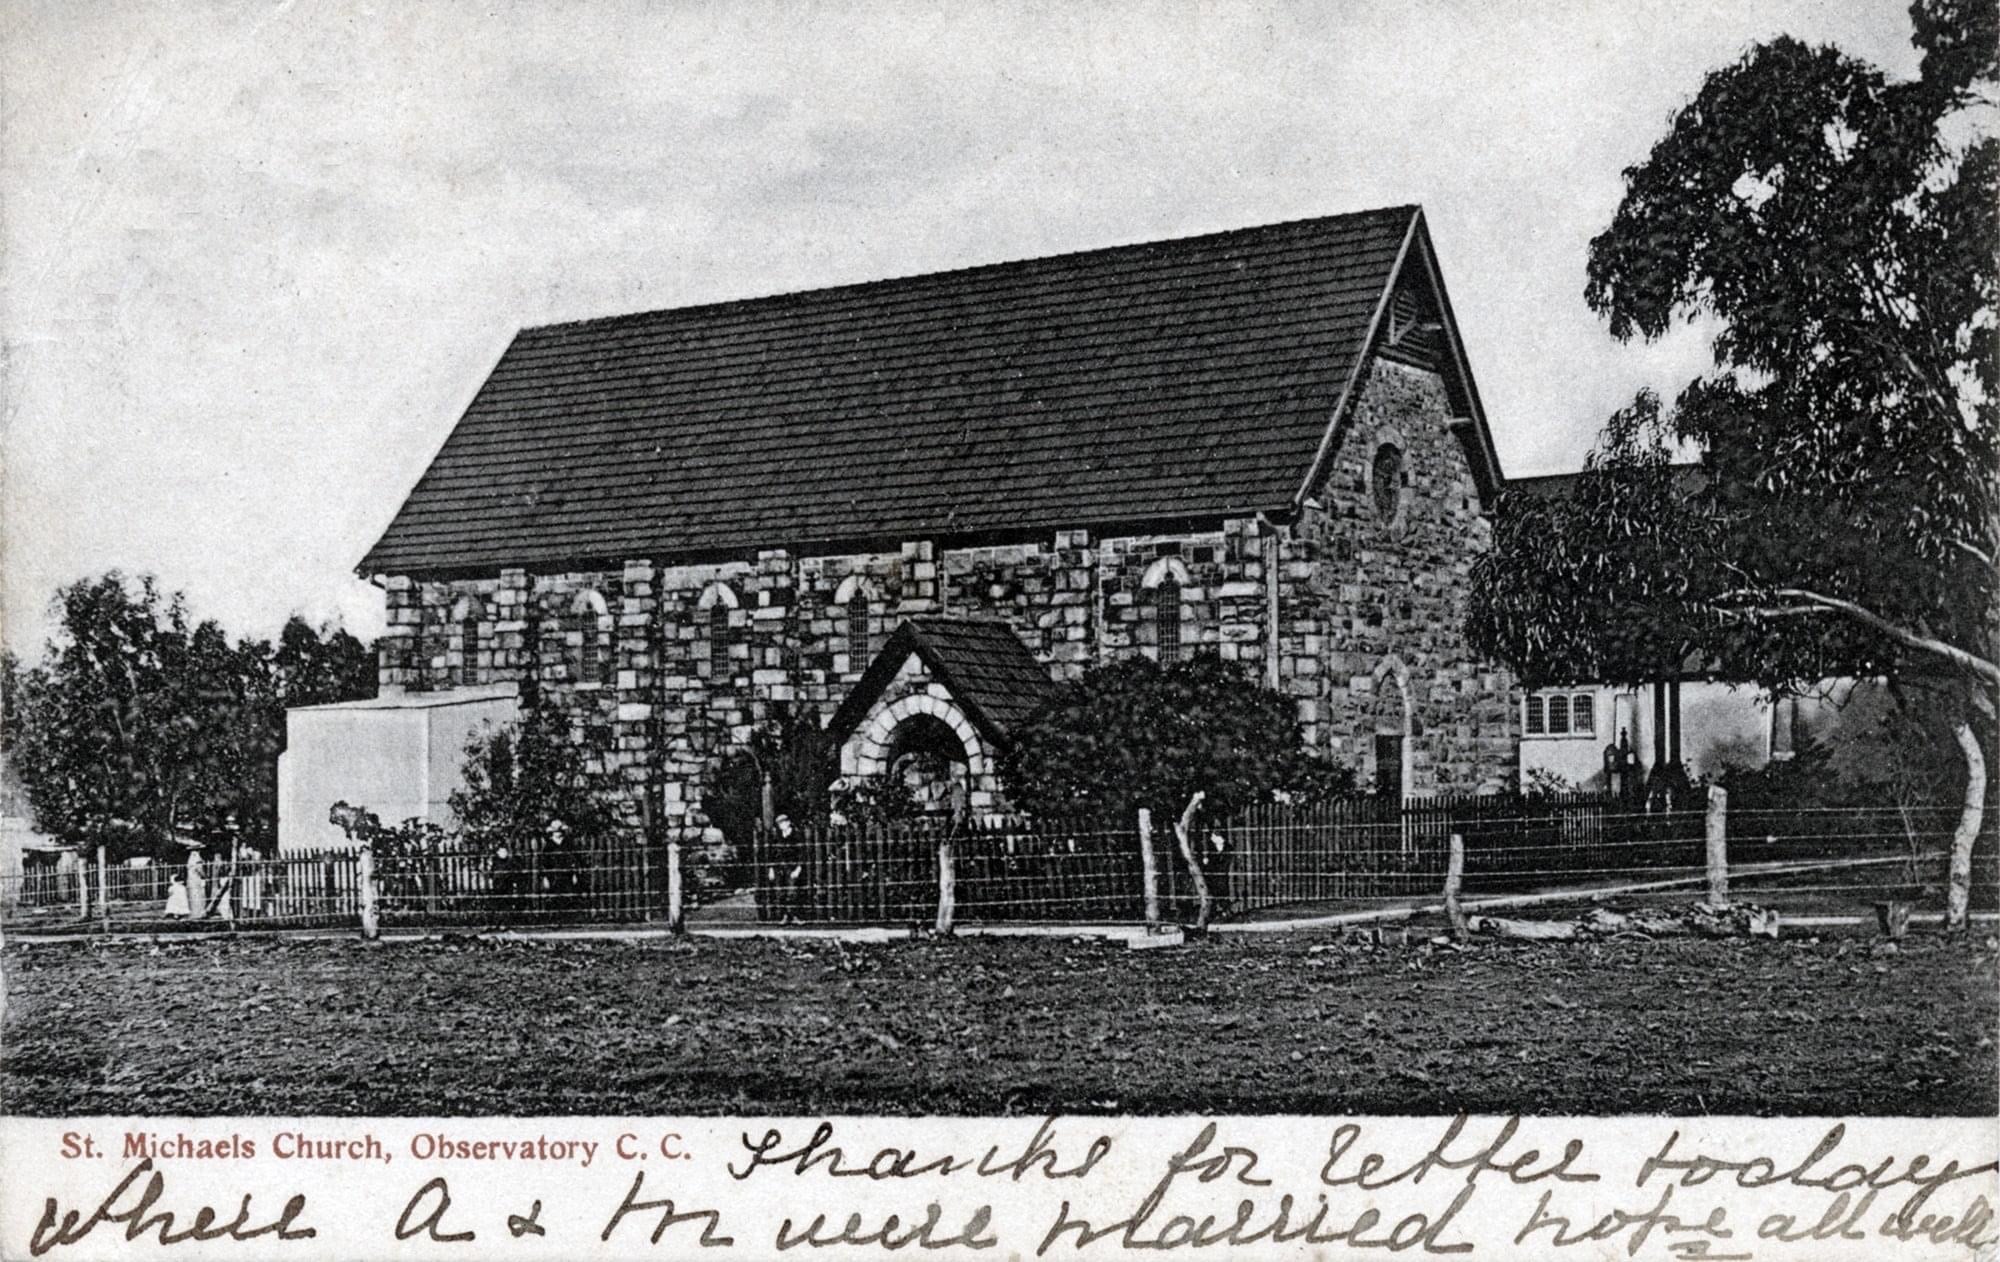 St. Michaels Church, Observatory C. C. Thanks for letter today
where A & M were married hope all well